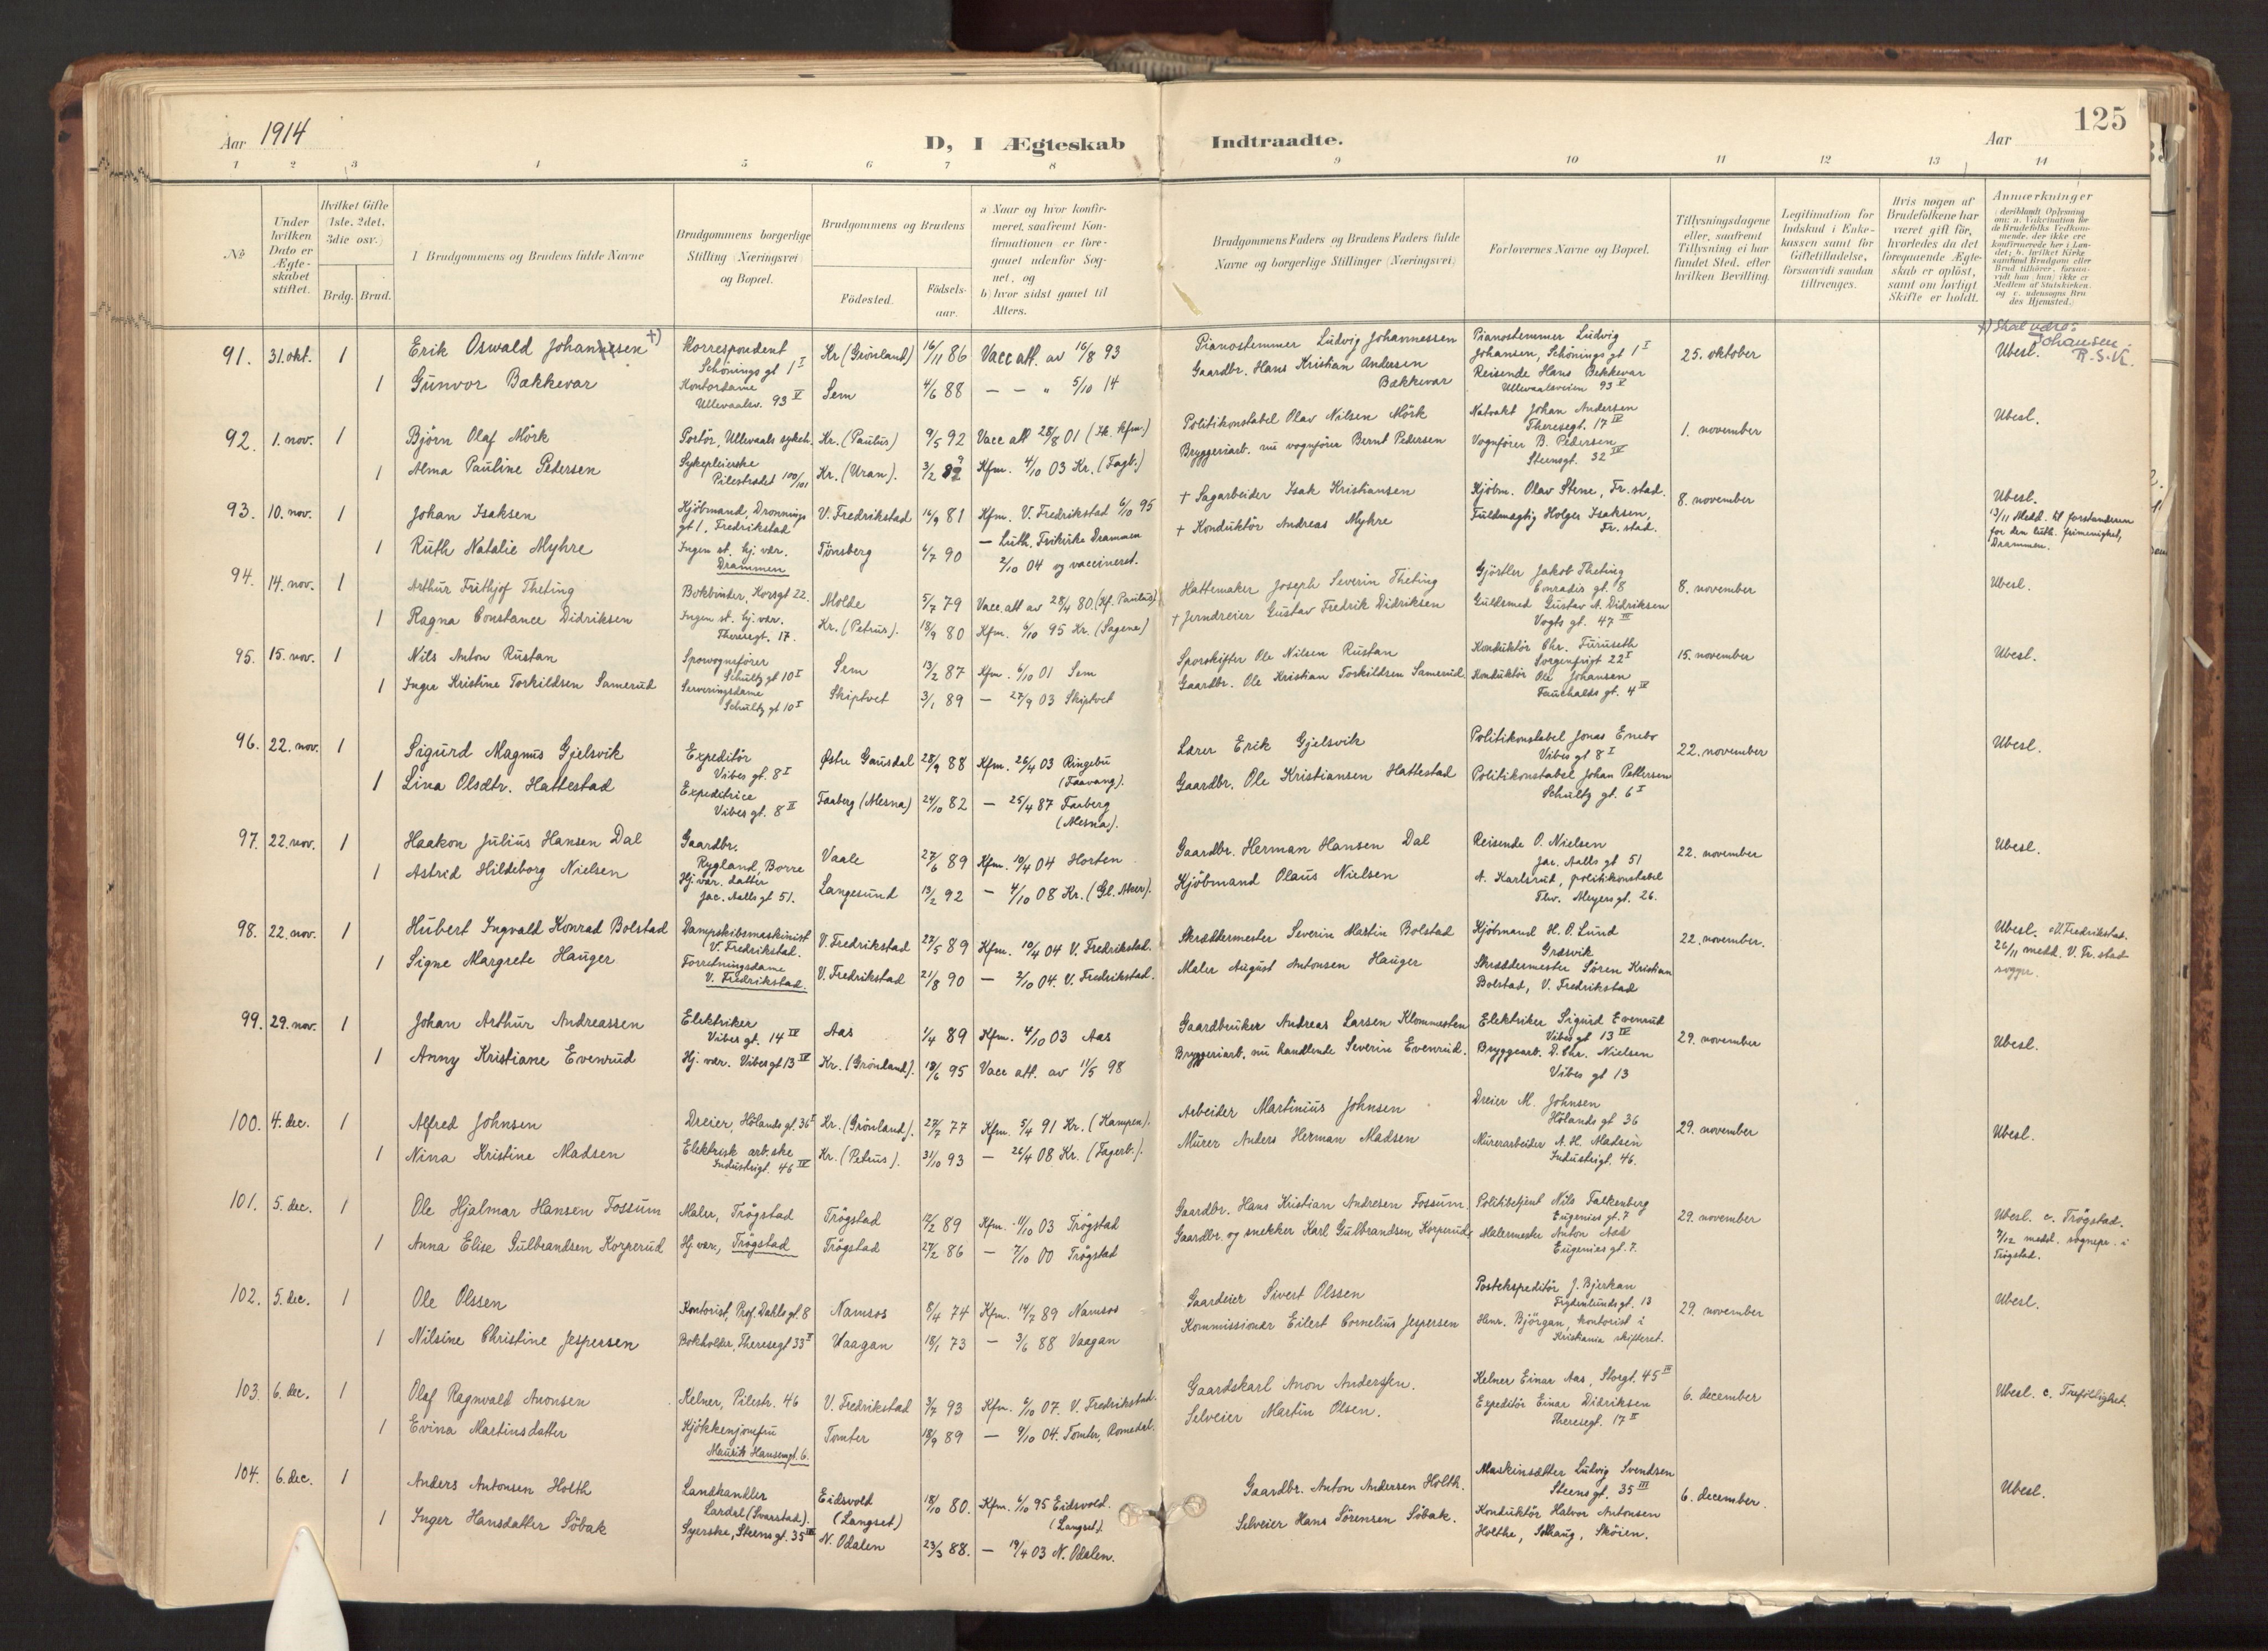 125
Aar 1914 D, I Ægteskab Indtraadte. Aar
1 2 3 4 5 6 7 8 9 10 11 12 13 14
No
Under hvilken Dato er Ægteskabet stiftet.
Hvilket Gifte (1ste, 2det, 3die osv.)
Brdg. Brud.
I Brudgommens og Brudens fulde Navne
Brudgommens borgerlige Stilling (Næringsvei) og Bopæl.
Brudgommens og Brudens
Födested.
Födselsaar.
a) Naar og hvor konfirmeret, saafremt Konfirmationen er foregaaet udenfor Sognet, og
b) hvor sidst gaaet til Alters.
Brudgommens Faders og Brudens Faders fulde Navne og borgerlige Stillinger (Næringsvei)
Forlovernes Navne og Bopæl.
Tillysningsdagene eller, saafremt Tillysning ei har fundet Sted, efter hvilken Bevilling.
Legitimation for Indskud i Enkekassen samt for Giftetilladelse, forsaavidt saadan tiltrænges.
Hvis nogen af Brudefolkene har været gift för, hvorledes da det foregaaende Ægteskab er oplöst, samt om lovligt Skifte er holdt.
Anmærkninger
(deriblandt Oplysning om: a. Vakcination for de Brudefolks Vedkommende, der ikke ere konfirmerede her i Landet; b. hvilket Kirkesamfund Brudgom eller Brud tilhörer, forsaavidt han (hun) ikke er Medlem af Statskirken, og c. udensogns Brudes Hjemsted.)
91. 31. okt. 1 Erik Oswald Johannesen +) Korrespondent Schönings gt 1 I Kr (Grönland) 16/11 86 Vacc att. av 16/8 93 Pianostemmer Ludvig Johannessen Pianostemmer Ludvig Johansen, Schönings gt 1 I 25. oktober Ubesl.
+) Skal være: Johansen. R.S.K.
1 Gunvor Bakkevar Kontordame Ullevaalsv. 93 V Sem 4/6 88 — — " 5/10 14 Gaardbr. Hans Kristian Andersen Bækkevar Reisende Hans Bekkevar Ullevaalsveien 93 V
92. 1. nov. 1 Björn Olaf Mörk Portör, Ullevaals sykeh. Kr. (Paulus) 9/5 92 Vacc att 28/8 01 (Ik. kfm.) Politikonstabel Olav Nilsen Mörk Natvakt Johan Andersen Theresegt. 17 IV 1. november Ubesl.
1 Alma Pauline Pedersen Sykepleierske Pilestrædet 100/101 Kr. (Uran). 3/2 89 Kfm. 4/10 03 Kr. (Fagb.) Bryggeriarb. nu vognfører Bernt Pedersen Vognfører B. Pedersen Steensgt. 32 IV
93. 10. nov. 1 Johan Isaksen Kjöbmand, Dronnings gt 1, Fredrikstad V. Fredrikstad 16/9 81 Kfm. V. Fredrikstad 6/10 95 + Sagarbeider Isak Kristiansen Kjöbm. Olav Stene, Fr. stad. 8. november Ubesl.
13/11 Medd. til forstanderen for den luth. frimenighet, Drammen.
1 Ruth Natalie Myhre Ingen st. hj. vær. Drammen Tönsberg 6/7 90 — Luth. Frikirke Drammen 2/10 04 og vaccineret. + Konduktör Andreas Myhre Fuldmægtig Holger Isaksen, Fr. stad.
94. 14. nov. 1 Arthur Frithjof Theting Bokbinder, Korsgt 22. Molde 5/7 79 Vacc. att av 28/4 80. (Kf. Paulus) Hattemaker Joseph Severin Theting Gjörtler Jakob Theting Conradis gt. 8 8. november Ubesl.
1 Ragna Constance Didriksen Ingen st. hj. vær. Theresegt. 17. Kr. (Petrus). 18/9 80 Kfm. 6/10 95 Kr. (Sagene) + Jerndreier Gustav Fredrik Didriksen Guldsmed Gustav A. Didriksen Vogts gt. 47 III
95. 15. nov. 1 Nils Anton Rustan Sporvognsfører Schultz gt 10 I Sem 13/2 87 Kfm. 6/10 01 Sem Sporskifter Ole Nilsen Rustan Konduktör Chr. Furuseth Sorgenfrigt 22 I 15. november Ubesl.
1 Inger Kristine Torkildsen Samerud Serveringsdame Schultz gt 10 I Skiptvet 3/1 89 — 27/9 03 Skiptvet Gaardbr. Ole Kristian Torkildsen Samerud. Konduktör Ole Johansen Fauchalds gt. 4 IV
96. 22. nov. 1 Sigurd Magnus Gjelsvik Expeditör Vibes gt. 8 I Østre Gausdal 28/9 88 Kfm. 26/4 03 Ringebu (Faavang). Lærer Erik Gjelsvik Politikonstabel Jonas Enebo Vibes gt 8 I 22. november Ubesl.
1 Lina Olsdtr. Hattestad Expeditrice Vibes gt. 8 II Faaberg (Mesna) 24/10 82 — 25/4 87 Faaberg (Mesna). Gaardbr. Ole Kristiansen Hattestad Politikonstabel Johan Pettersen Schultz gt. 6 I
97. 22. nov. 1 Haakon Julius Hansen Dal Gaardbr. Rygland, Borre Vaale 27/6 89 Kfm. 10/4 04 Horten Gaardbr. Herman Hansen Dal Reisende O. Nielsen Jac. Aalls gt 51 22. november Ubesl.
1 Astrid Hildeborg Nielsen Hj. vær. datter Jac. Aalls gt 51. Langesund 13/2 92 — 4/10 08 Kr. (Gl. Aker). Kjöbmand Olaus Nielsen A. Karlsrud, politikonstabel Thv. Meyers gt. 26.
98. 22. nov. 1 Hubert Ingvald Konrad Bolstad Dampskibsmaskinist V. Fredrikstad. V. Fredrikstad 27/5 89 Kfm. 10/4 04 V. Fredrikstad. Skræddermester Severin Martin Bolstad Kjöbmand H. O. Lund Græsvik 22. november. Ubesl. c V. Fredrikstad.
26/11 medd. V. Fr. stad sogpr.
1 Signe Margrete Hauger Forretningsdame V. Fredrikstad. V. Fredrikstad 21/8 90 — 2/10 04. V. Fredrikstad. Maler August Antonsen Hauger Skræddermester Sören Kristian Bolstad, V. Fredrikstad
99. 29. nov. 1 Johan Arthur Andreassen Elektriker Vibes gt. 14 IV Aas 1/4 89 Kfm. 4/10 03 Aas Gaardbruker Andreas Larsen Klommesten Elektriker Sigurd Evenrud Vibes gt 13 IV 29. november Ubesl.
1 Anny Kristiane Evenrud Hj. vær. Vibes gt 13 IV Kr. (Grönland). 18/6 95 Vacc att. av 11/5 98 Bryggeriarb. nu handlende Severin Evenrud. Bryggearb. D. Chr. Nielsen Vibes gt 13
100. 4. dec. 1 Alfred Johnsen Dreier, Hölands gt. 36 I Kr. (Grönland). 27/7 77 Kfm. 5/4 91 Kr. (Kampen). Arbeider Martinius Johnsen Dreier M. Johnsen Hölands gt 36 29. november Ubesl.
1 Nina Kristine Madsen Elektrisk arb.ske Industrigt. 46 IV Kr. (Petrus). 31/10 93 — 26/4 08 Kr. (Fagerb.). Murer Anders Herman Madsen Murerarbeider A. H. Madsen Industrigt. 46.
101. 5. dec. 1 Ole Hjalmar Hansen Fossum Maler, Trögstad Trögstad 17/2 89 Kfm. 11/10 03 Trögstad Gaardbr. Hans Kristian Andresen Fossum. Politibetjent Nils Falkenberg Eugenies gt. 7 29. november Ubesl. c. Trögstad.
7/12 medd. sognepr. i Trögstad.
1 Anna Elise Gulbrandsen Korperud Hj. vær., Trögstad Trögstad 27/2 86 — 7/10 00 Trögstad Gaardbr. og snekker Karl Gulbrandsen Korperud Malermester Anton Aas Eugenies gt. 7.
102. 5. dec. 1 Ole Olssen Kontorist, Prof. Dahls gt. 8 Namsos 8/4 74 Kfm. 14/7 89 Namsos Gaardeier Sivert Olssen Postekspeditör J. Bjerkan Frydenlundsgt. 13 29. november Ubesl.
1 Nilsine Christine Jespersen Bokholder, Theresegt 33 II Vaagan 18/1 73 — 3/6 88 Vaagan Kommissionær Eilert Cornelius Jespersen Hans. Björgan, kontorist i Kristiania skifteret.
103. 6. dec. 1 Olaf Ragnvald Aronsen Kelner, Pilestr. 46 V. Fredrikstad 3/7 93 Kfm. 6/10 07. V. Fredrikstad. Gaardskarl Aron Andersen. Kelner Einar Aas, Storgt. 45 III 6. december Ubesl. c. Trefoldighet.
1 Evina Martinsdatter Kjökkenjomfru Maurits Hansens gt. 6. Tomter 18/9 89 — 9/10 04. Tomter, Romedal. Selveier Martin Olsen. Expeditör Einar Didriksen Theresegt. 17 II
104. 6. dec. 1 Anders Antonsen Holth Landhandler Lardal (Svarstad). Eidsvold (Langset) 18/10 80. Kfm. 6/10 95 Eidsvold. (Langset). Gaardbr. Anton Andersen Holth. Maskinsætter Ludvig Svendsen Steens gt. 35 III 6. december. Ubesl.
1 Inger Hansdatter Söbak Syerske, Steens gt. 35 III N. Odalen 23/3 88. — 19/4 03 N. Odalen. Selveier Hans Sörensen Söbak. Konduktör Halvor Antonsen Holthe, Solhaug, Sköien.